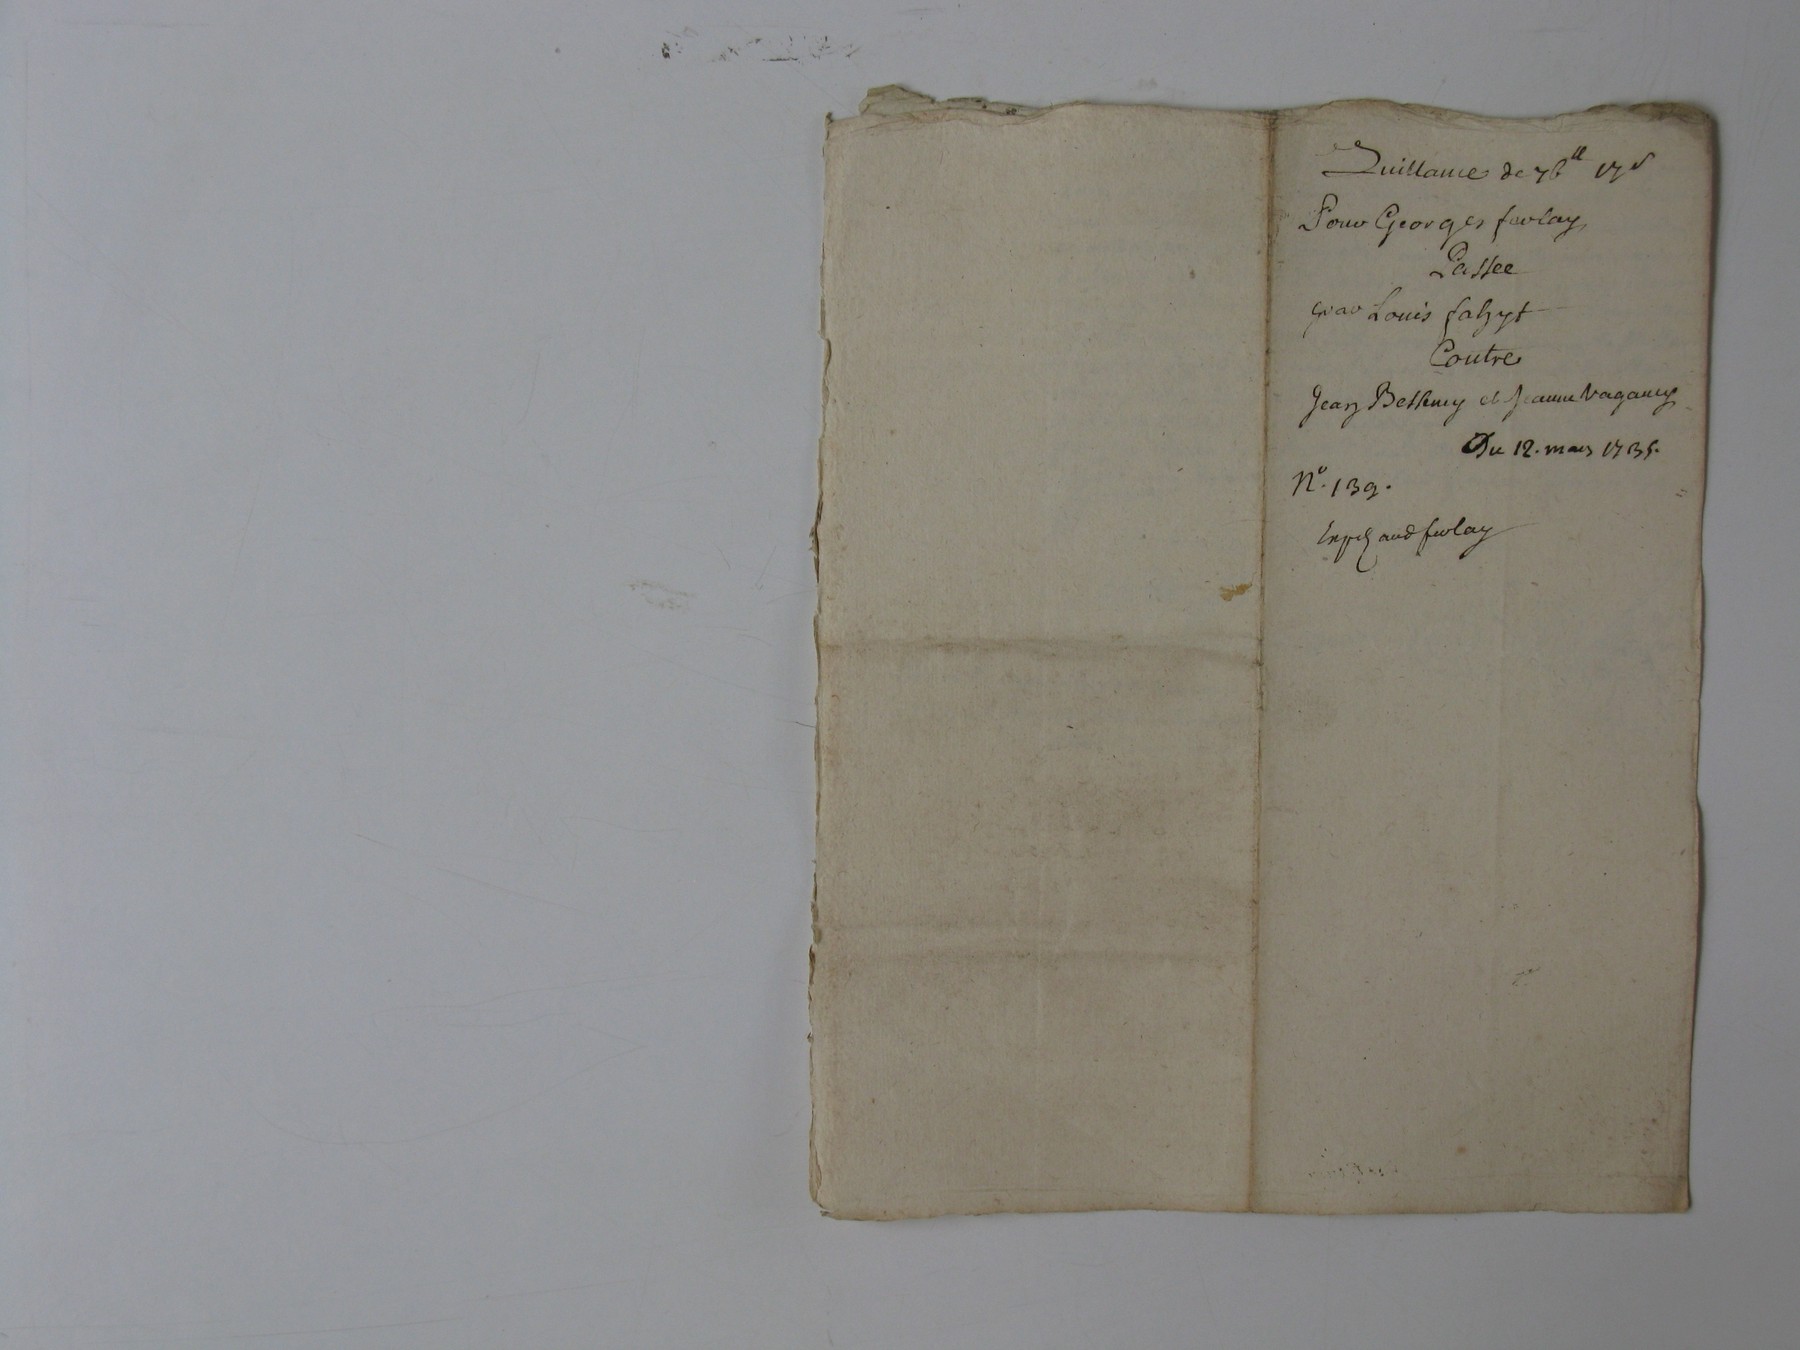 Quittance de 76ll 17s
Pour Georges feolay
Passee
par Louis falzyt
Contre
Jean Betheney et Jeanne Vaganey
Du 12. mars 1735.
N°. 139.
feolay